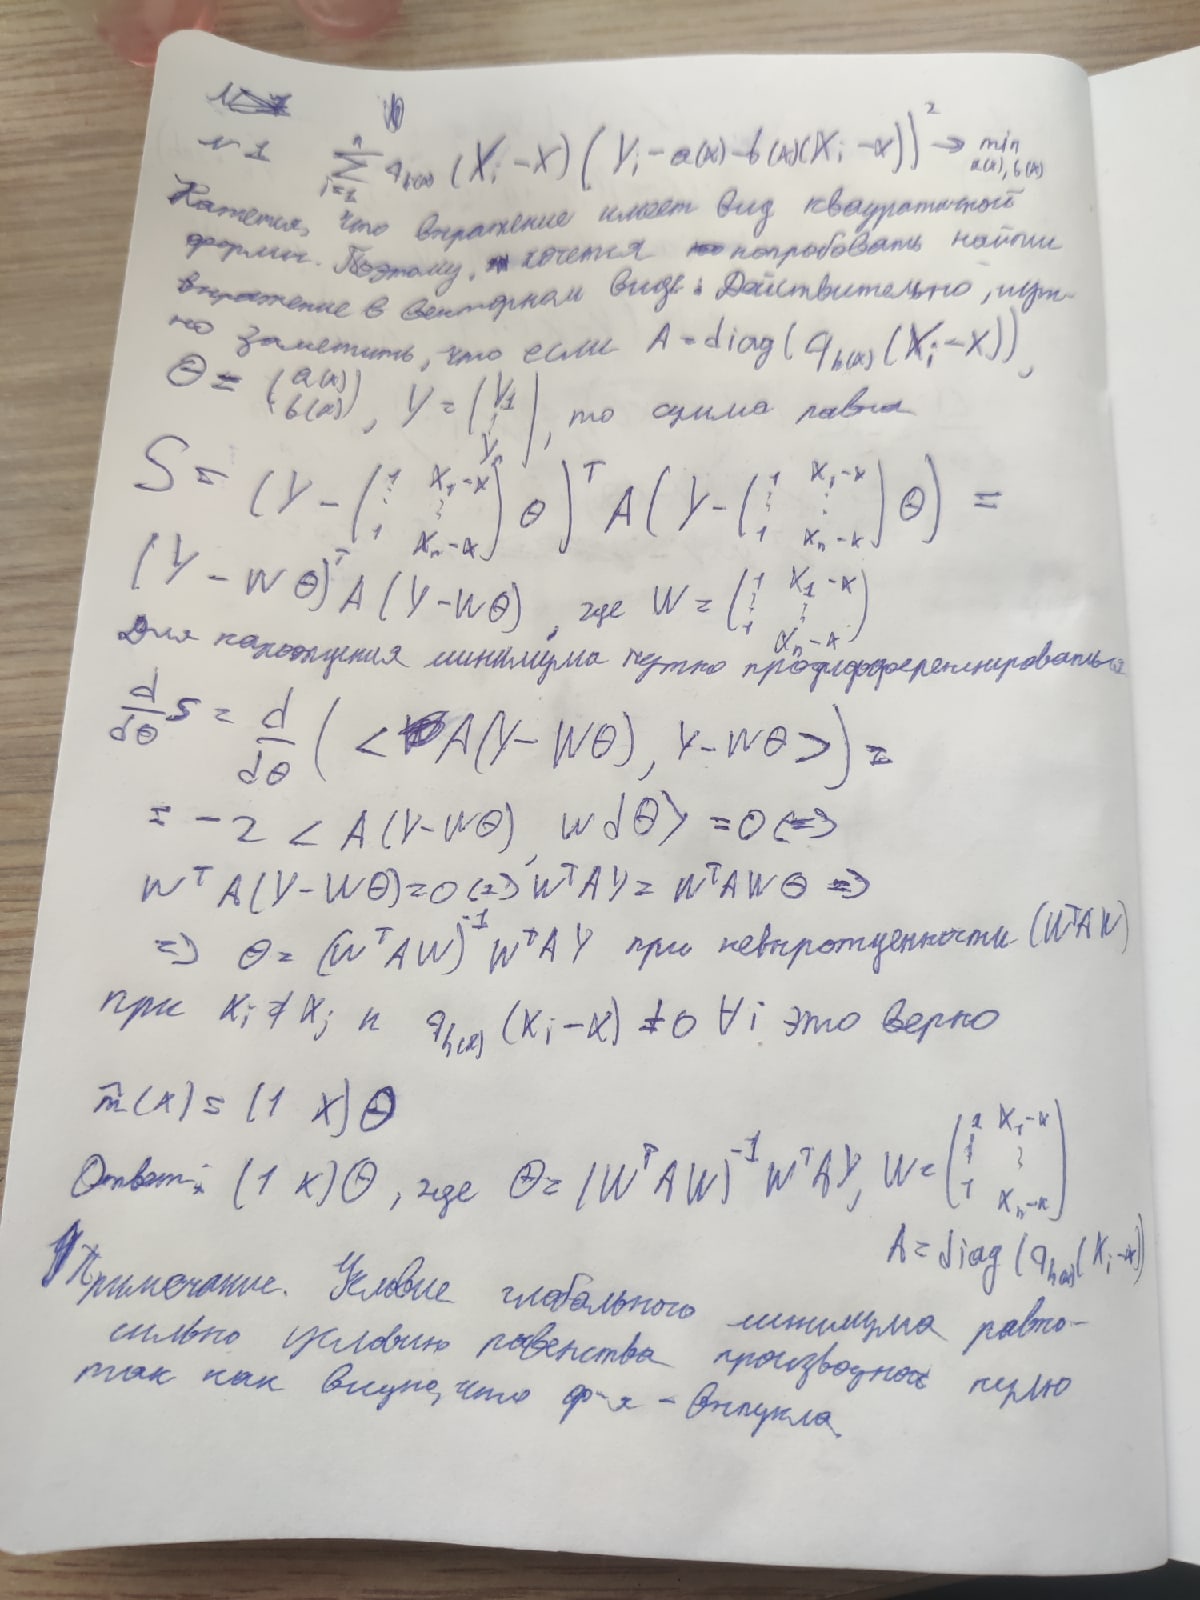 N1 \sum_{i=1}^{n} q_{h(x)} (X_i - x) (Y_i - a(x) - b(x)(X_i - x))^2 → min_{a(x), b(x)}
Кажется, что выражение имеет вид квадратичной
формы. Поэтому, хочется попробовать найти
выражение в векторном виде. Действительно, нуж-
но заметить, что если A = diag(q_{h(x)}(X_i - x)),
Θ = (a(x) b(x)), Y = (Y_1 ⋮ Y_n), то сумма равна
S = (Y - (1 X_1-x ⋮ ⋮ 1 X_n-x) Θ)^T A (Y - (1 X_1-x ⋮ ⋮ 1 X_n-x) Θ) =
(Y - WΘ)^T A (Y - WΘ), где W = (1 X_1-x ⋮ ⋮ 1 X_n-x)
Для нахождения минимума нужно продифференцировать
d/dΘ S = d/dΘ (< A(Y - WΘ), Y - WΘ >) =
= -2 < A(Y - WΘ), W dΘ > = 0 <=>
W^T A(Y - WΘ) = 0 <=> W^T A Y = W^T A W Θ =>
=> Θ = (W^T A W)^{-1} W^T A Y при невырожденности (W^T A W)
при X_i ≠ X_j и q_{h(x)} (X_i - x) ≠ 0 ∀i это верно
m̂(x) = (1 x) Θ
Ответ: (1 x) Θ, где Θ = (W^T A W)^{-1} W^T A Y, W = (1 X_1-x ⋮ ⋮ 1 X_n-x)
A = diag(q_{h(x)}(X_i - x))
Примечание. Условие глобального минимума равно-
сильно условию равенства производной нулю
так как видно, что ф-я - выпукла.